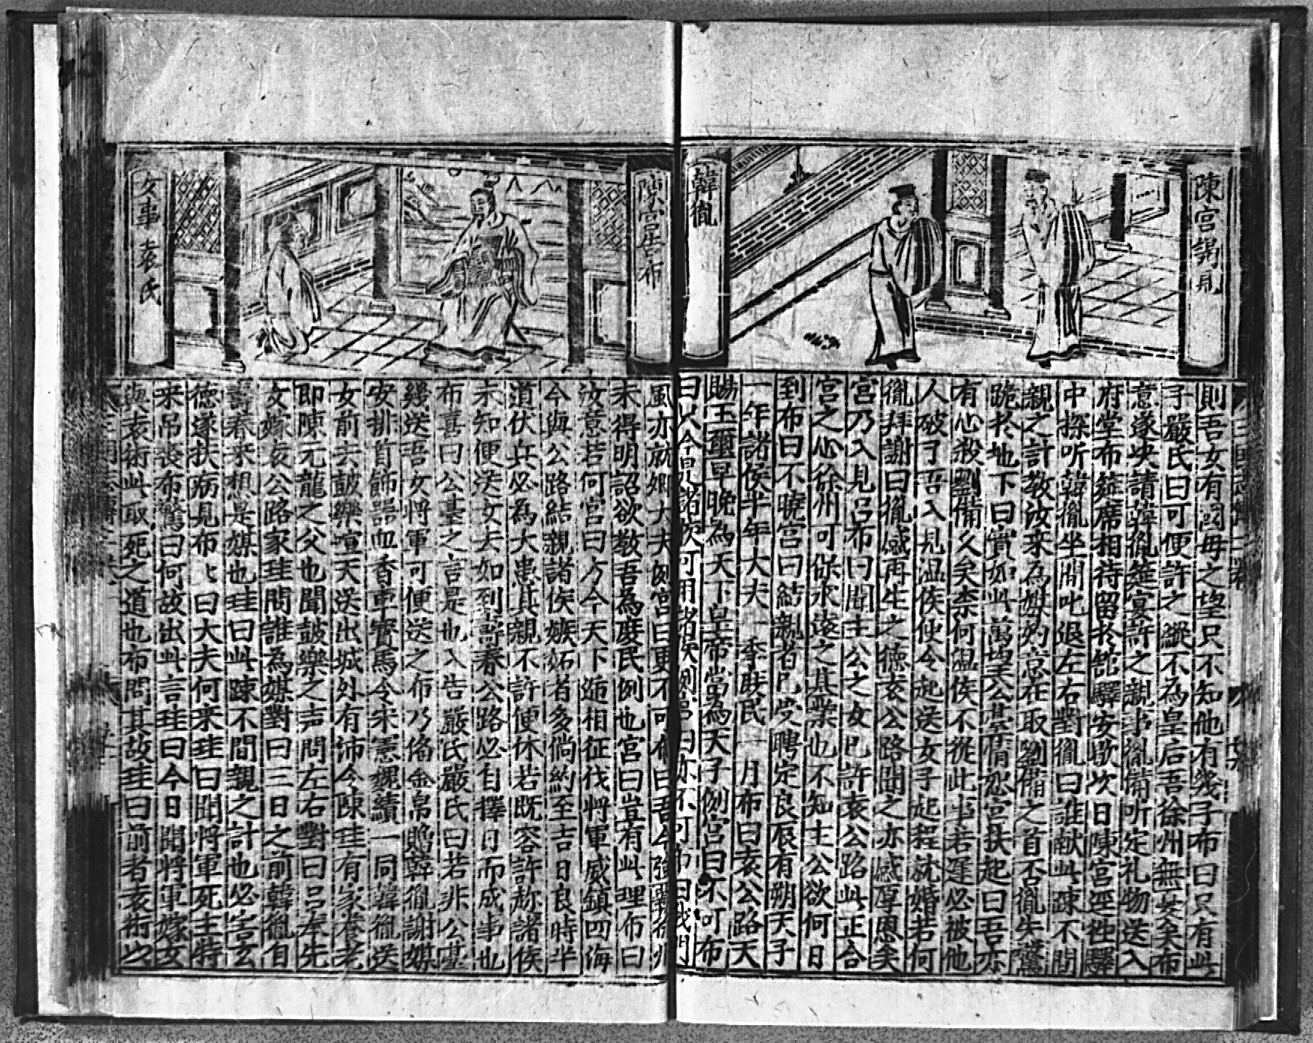 陳宮謁見
韓胤
則吾女有国母之望只不知他有幾子布曰只有此
子嚴氏曰可便許之縱不為皇后吾徐州無憂矣布
意遂决請韓胤筵宴許之親事胤備听定礼物送入
府堂布筵席相待留扵舘驛安歇次日陳宮逕徃驛
中探听韓胤坐間叱退左右對胤曰誰献此踈不間
親之計教汝来為媒妁意在取劉備之首否胤失驚
跪扵地下曰實如此萬望公臺隋恕宮扶起曰吾亦
有心殺劉備久矣柰何温侯不從此事若遲必被他
人破了吾入見温侯使令起送女子起程就婚若何
胤拜謝曰胤感再生之德袁公路聞之亦感厚恩矣
宮乃入見呂布曰聞主公之女已許袁公路此正合
宮之心徐州可保永遠之基業也不知主公欲何日
到布曰不曉宮曰結親者已受聘定良辰有朔天子
一年諸侯半年大夫一季庶民一月布曰袁公路天
賜玉璽早晚為天下皇帝當為天子例宮曰不可布
陳宮告布
女事袁氏
風亦就卿大夫例宮曰更不可布曰吾今
未得明詔欲教吾為庶民例也宮曰豈有此理布曰
汝意若何宮曰方今天下逓相征伐将軍威鎮四海
今與公路結親諸侯嫉妬者多倘約至吉日良時半
道伏兵必為大患其親不許便休若既容許趂諸侯
未知便送女去如到壽春公路必自擇日而成事也
布喜曰公臺之言是也入告嚴氏嚴氏曰若非公臺
幾送吾女将軍可便送之布乃俻金帛贈韓胤謝媒
安排首飾噐皿香車寳馬令宋憲魏續一同韓胤送
女前去皷樂喧天送出城外有沛令陳珪有家養老
即陳元龍之父也聞皷樂之声問左右對曰呂奉先
女嫁袁公路家珪問誰為媒對曰三日之前韓胤自
壽春来想是媒也珪曰此踈不間親之計也必害玄
德遂扶病見布〻曰大夫何来珪曰聞将軍死主特
来吊喪布驚曰何故出此言珪曰今日聞将軍嫁女
與袁術此取死之道也布問其故珪曰前者袁術以